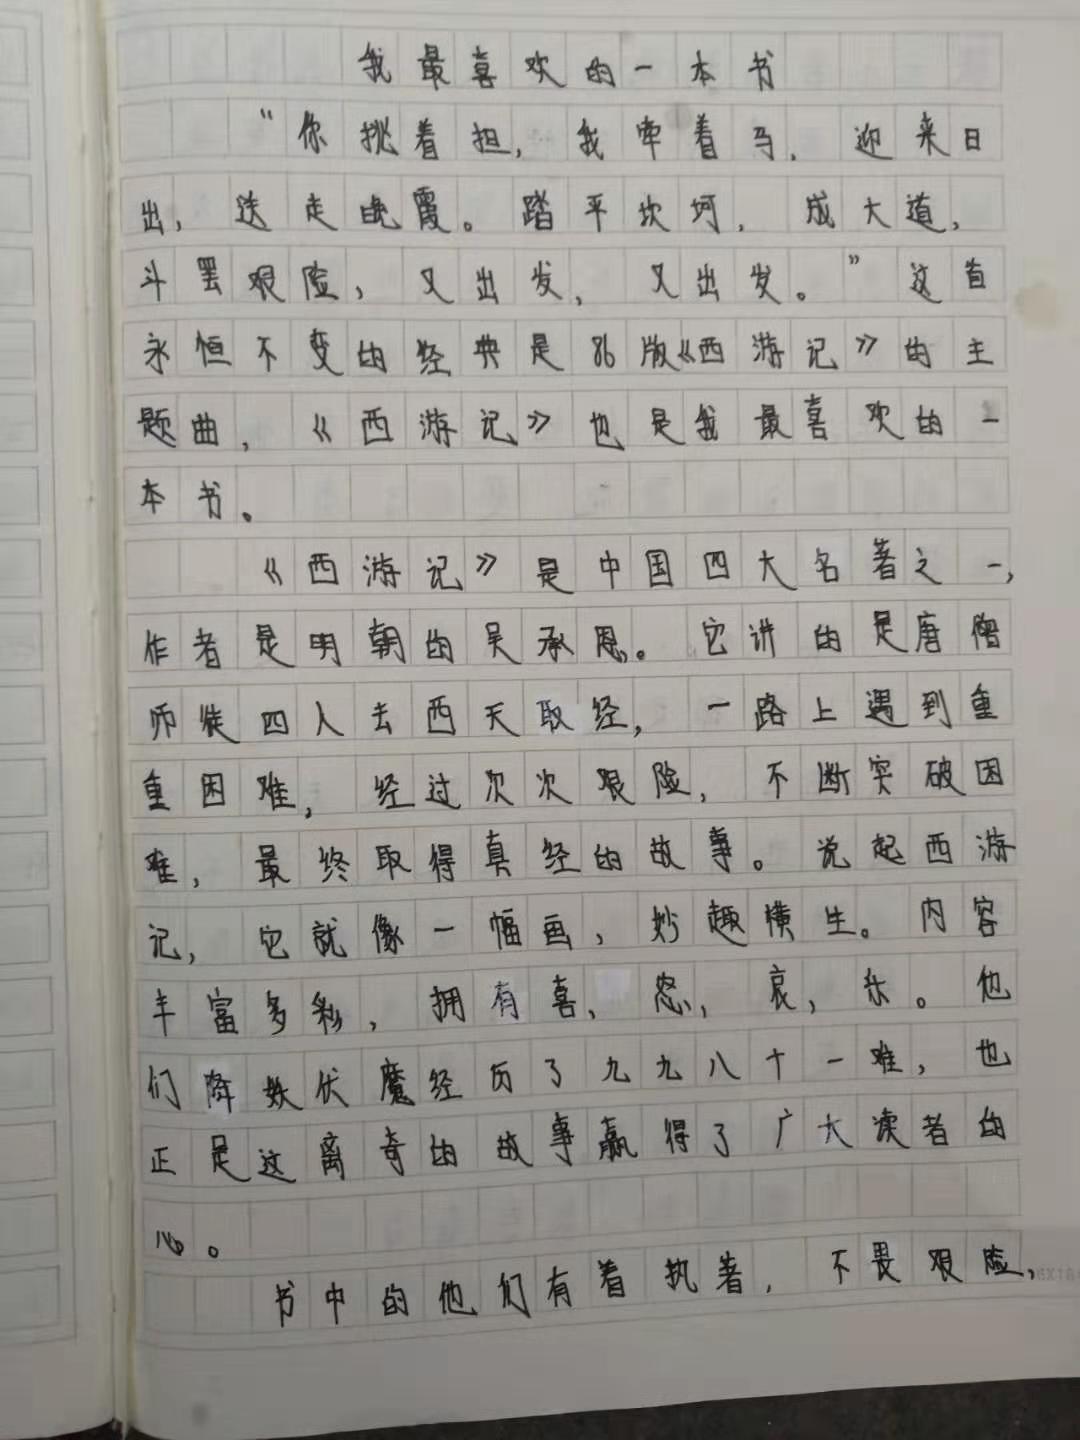 我最喜欢的一本书
“你挑着担，我牵着马，迎来日
出，送走晚霞。踏平坎坷，成大道，
斗罢艰险，又出发，又出发。”这首
永恒不变的经典是86版《西游记》的主
题曲，《西游记》也是我最喜欢的一
本书。
《西游记》是中国四大名著之一，
作者是明朝的吴承恩。它讲的是唐僧
师徒四人去西天取经，一路上遇到重
重困难，经过次次艰险，不断突破困
难，最终取得真经的故事。说起西游
记，它就像一幅画，妙趣横生。内容
丰富多彩，拥有喜、怒，哀，乐。他
们降妖伏魔经历了九九八十一难，也
正是这离奇的故事赢得了广大读者的
心。
书中的他们有着执著，不畏艰险，